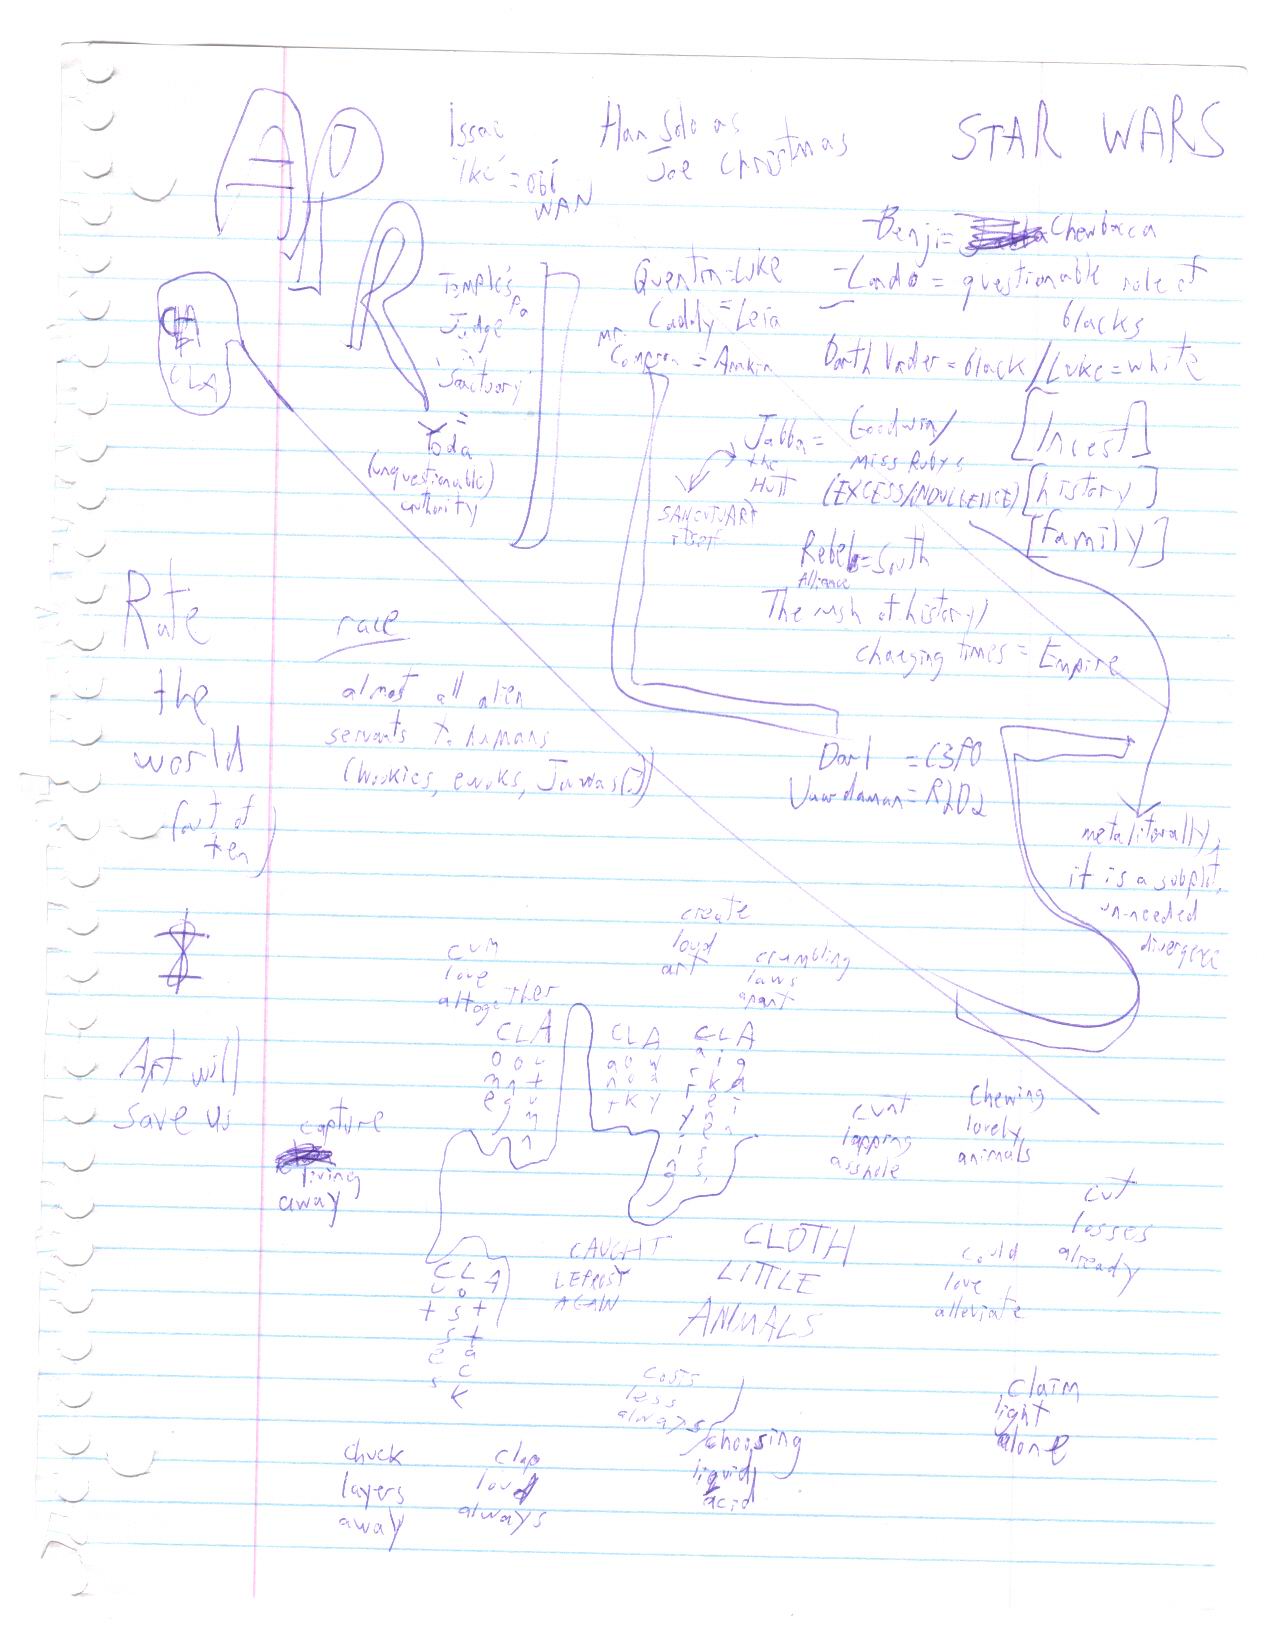 APR
Issac
'Ike' = Obi
WAN
Han Solo as
Joe Christmas
STAR WARS
-Benji = Chewbacca
Quentin = Luke
-Lando = questionable role of
blacks
Caddy = Leia
mr.
Compson = Anakin
Darth Vader = black / Luke = white
Temple's
Pa
Judge
in
'Sanctuary'
=
Yoda
(unquestionable)
authority
CLA
CLA
Jabba =
the
Hutt
Goodwin/
Miss Ruby's
(EXCESS/INDULGENCE)
[Incest]
[history]
[family]
SANCTUARY
itself
Rebel = South
Alliance
The rush of history/
changing times = Empire
Rate
the
world
(out of
ten)
race
almost all alien
servants to humans
(Wookies, ewoks, Jawas(?))
Darl = C3PO
Vaardaman = R2D2
metaliterally,
it is a subplot,
un-needed
divergence
Art will
save us
cum
love
altogether
create
loud
art
crumbling
laws
apart
CLA
come
long
CLA
cannot
look
away
CLA
carrying
likeness,
again
capture
living
away
cunt
lapping
asshole
chewing
lovely
animals
cut
losses
already
CAUGHT
LEPROSY
AGAIN
CLOTH
LITTLE
ANIMALS
could
love
alleviate
CLA
cutes
loss
attack
costs
less
always
choosing
liquid
acid
claim
light
alone
chuck
layers
away
clap
loud
always